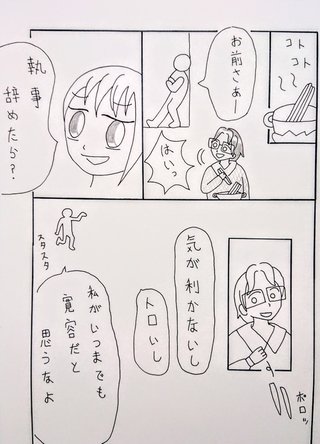 コト
コト
お前さぁー
はいっ
執事
辞めたら？
気が利かないし
トロいし
ポロッ
スタスタ
私がいつまでも
寛容だと
思うなよ